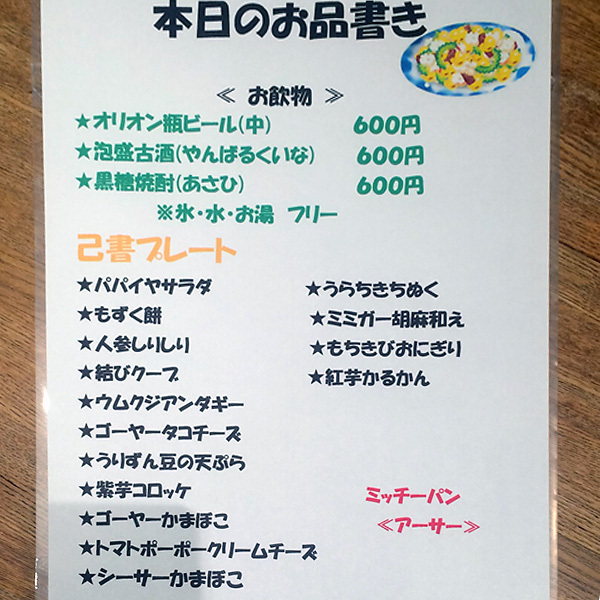 本日のお品書き
≪ お飲物 ≫
★オリオン瓶ビール(中) 600円
★泡盛古酒(やんばるくいな) 600円
★黒糖焼酎(あさひ) 600円
※氷・水・お湯 フリー
己書プレート
★パパイヤサラダ
★もずく餅
★人参しりしり
★結びクーブ
★ウムクジアンダギー
★ゴーヤータコチーズ
★うりずん豆の天ぷら
★紫芋コロッケ
★ゴーヤーかまぼこ
★トマトポーポークリームチーズ
★シーサーかまぼこ
★うらちきちぬく
★ミミガー胡麻和え
★もちきびおにぎり
★紅芋かるかん
ミッチーパン
≪アーサー≫